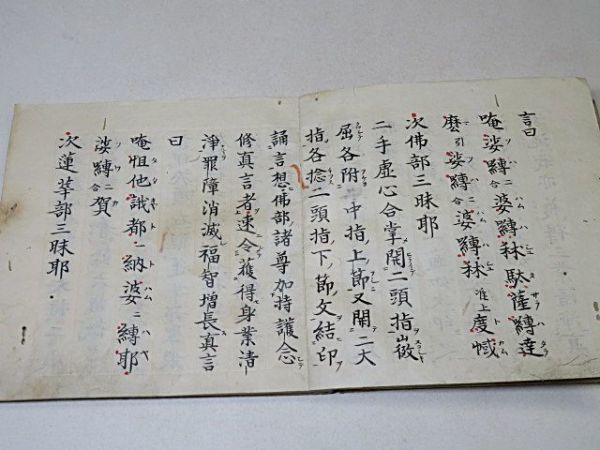 言曰
唵娑嚩二合婆嚩秫馱薩嚩達
麽引娑嚩二合婆嚩秫准上度憾
次佛部三昧耶
二手虚心合掌開二頭指㣲
屈各附中指上節又開二大
指各捻二頭指下節文結印
誦言想佛部諸尊加持護念
修真言者速令獲得身業清
淨罪障消滅福智增長真言
曰
唵怛他誐都一納婆二嚩耶
娑嚩二合賀
次蓮華部三昧耶